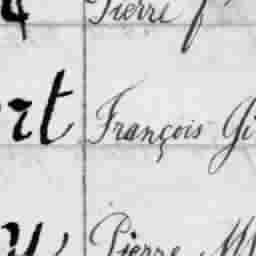 Pierre f
rt François Gi
y Pierre M